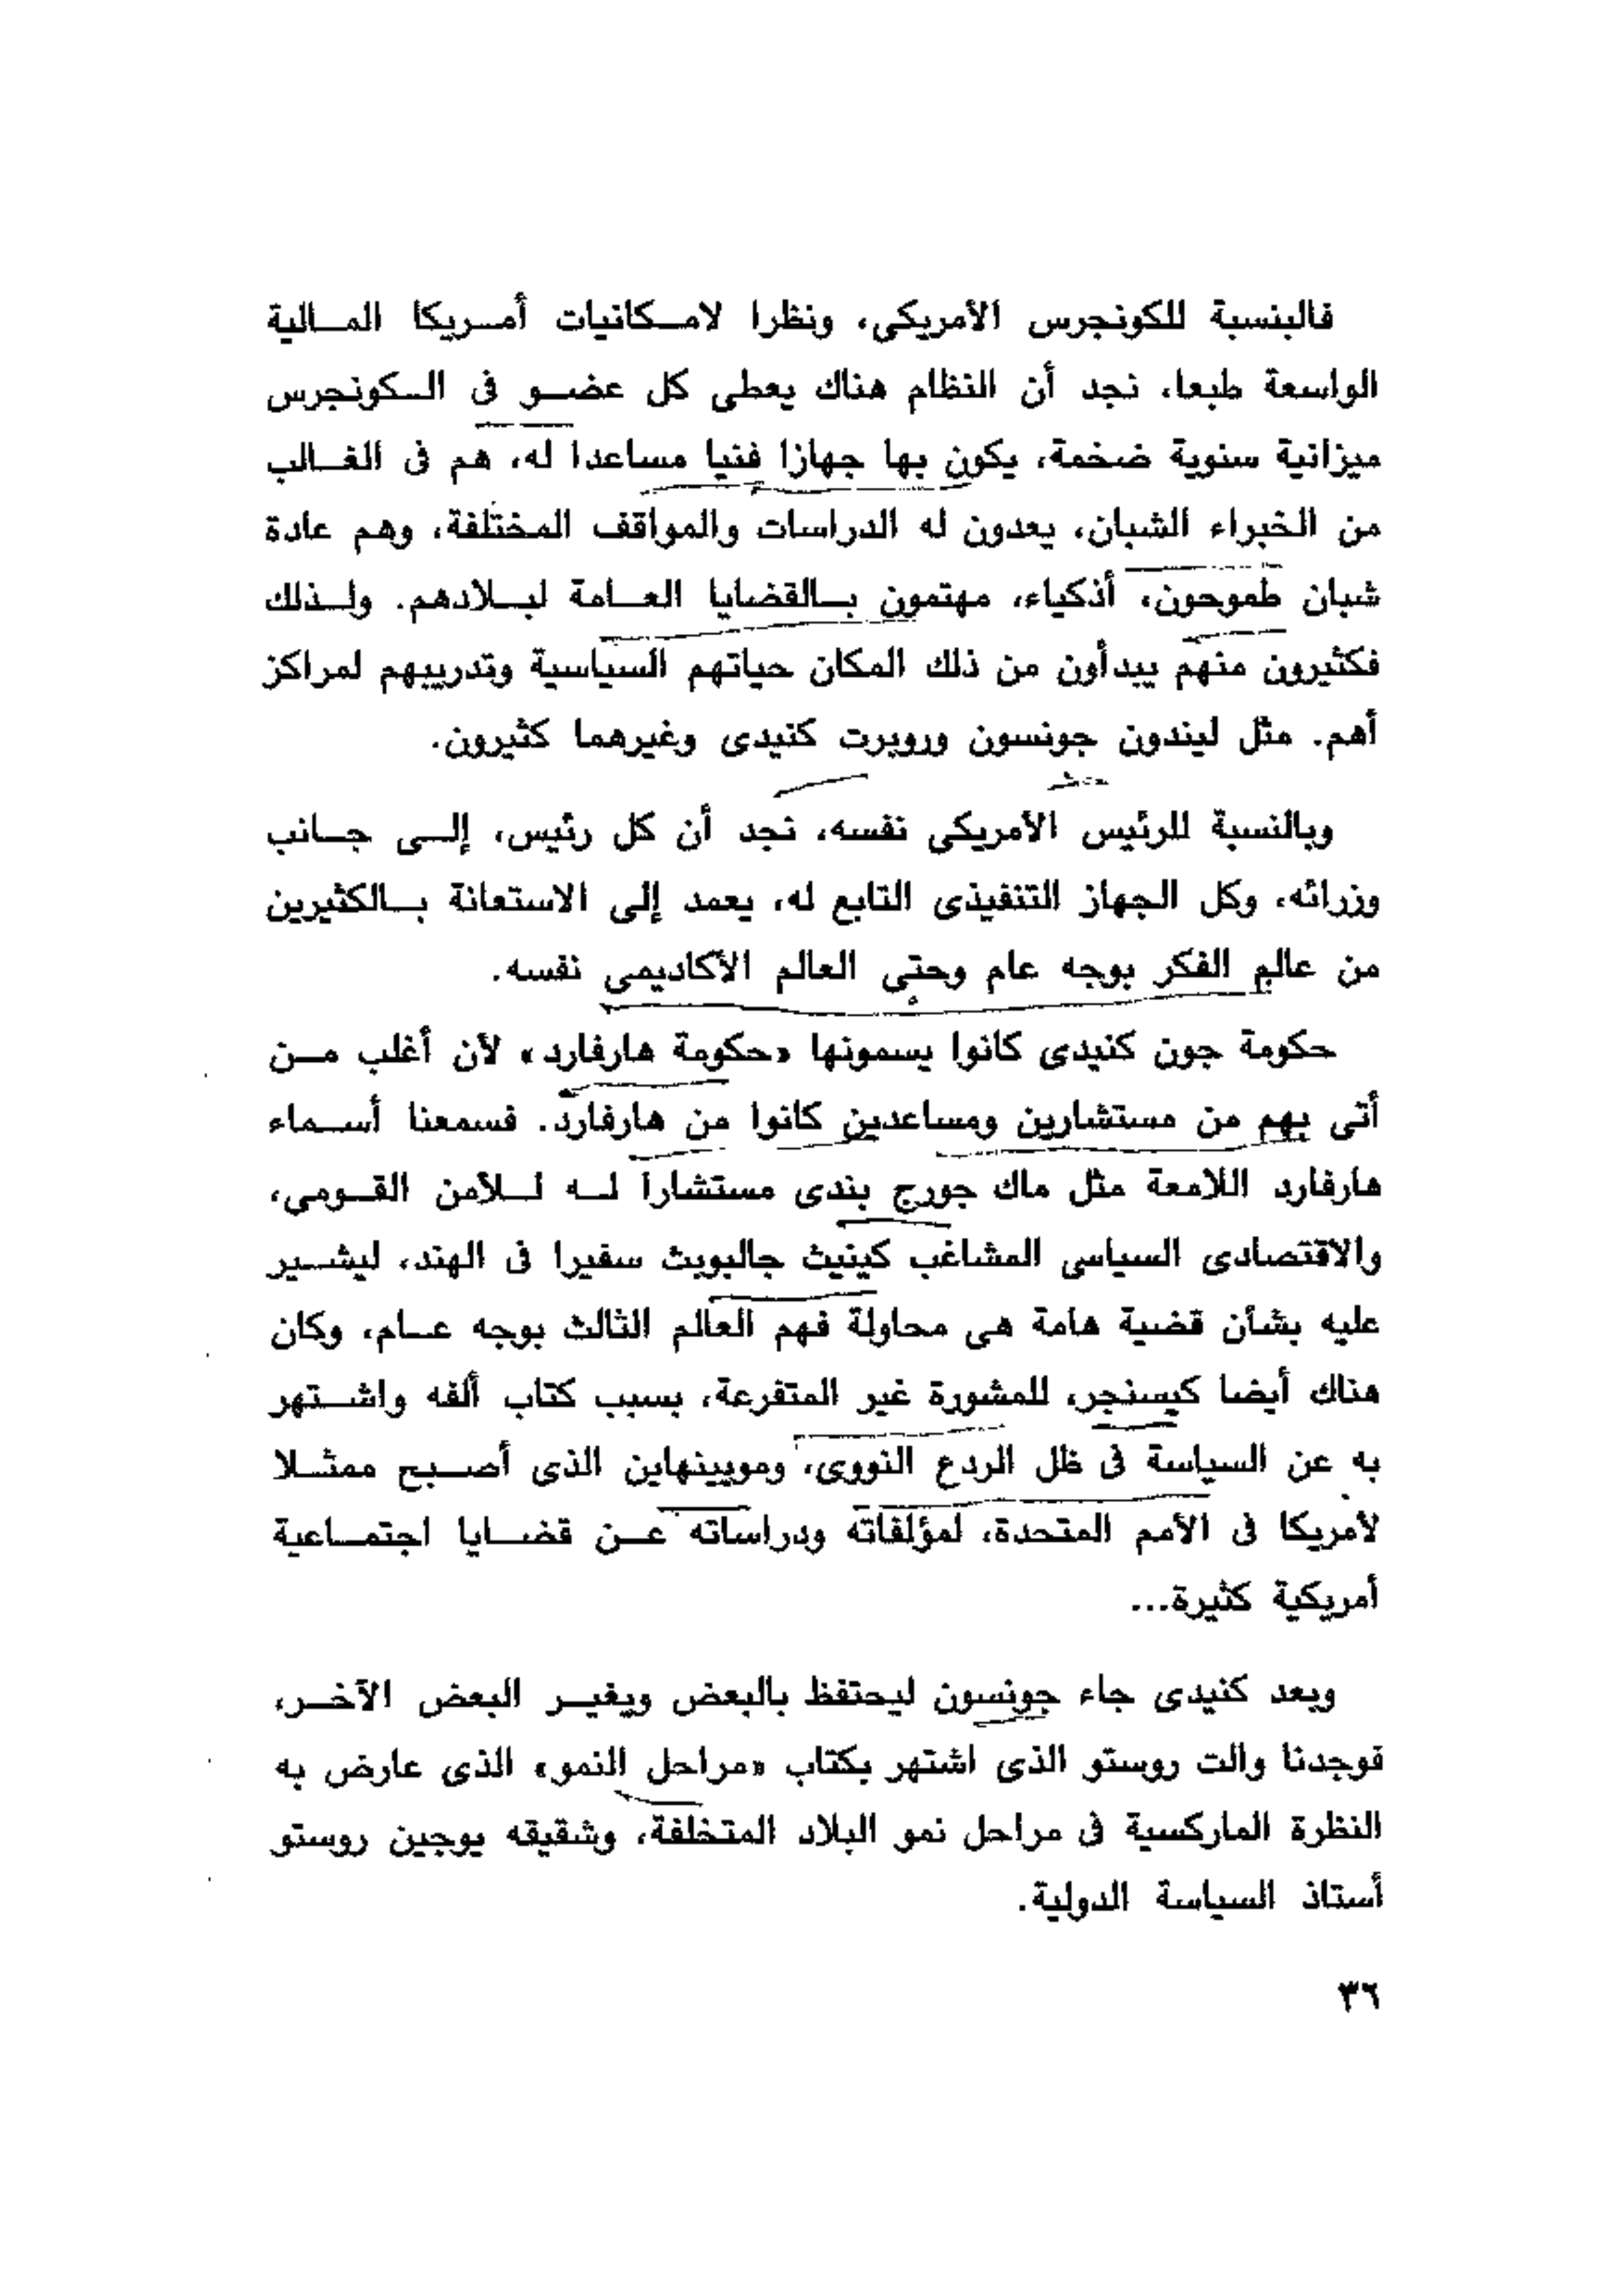 فالبنسبة للكونجرس الأمريكى، ونظرا لامكانيات أمريكا المالية
الواسعة طبعا، نجد أن النظام هناك يعطى كل عضو فى الكونجرس
ميزانية سنوية ضخمة، يكون بها جهازا فنيا مساعدا له، هم فى الغالب
من الخبراء الشبان، يعدون له الدراسات والمواقف المختلفة، وهم عادة
شبان طموحون، أذكياء، مهتمون بالقضايا العامة لبلادهم. ولذلك
فكثيرون منهم يبدأون من ذلك المكان حياتهم السياسية وتدريبهم لمراكز
أهم. مثل ليندون جونسون وروبرت كنيدى وغيرهما كثيرون.
وبالنسبة للرئيس الأمريكى نفسه، نجد أن كل رئيس، إلى جانب
وزرائه، وكل الجهاز التنفيذى التابع له، يعمد إلى الاستعانة بالكثيرين
من عالم الفكر بوجه عام وحتى العالم الأكاديمى نفسه.
حكومة جون كنيدى كانوا يسمونها «حكومة هارفارد» لأن أغلب من
أتى بهم من مستشارين ومساعدين كانوا من هارفارد. فسمعنا أسماء
هارفارد اللامعة مثل ماك جورج بندى مستشاراً له للأمن القومى،
والاقتصادى السياسى المشاغب كينيث جالبويث سفيرا فى الهند، ليشير
عليه بشأن قضية هامة هى محاولة فهم العالم الثالث بوجه عام، وكان
هناك أيضا كيسنجر، للمشورة غير المتفرعة، بسبب كتاب ألفه واشتهر
به عن السياسة فى ظل الردع النووى، وموبينهاين الذى أصبح ممثلا
لأمريكا فى الأمم المتحدة، لمؤلفاته ودراساته عن قضايا اجتماعية
أمريكية كثيرة...
وبعد كنيدى جاء جونسون ليحتفظ بالبعض ويغير البعض الآخر،
فوجدنا والت روستو الذى اشتهر بكتاب «مراحل النمو» الذى عارض به
النظرة الماركسية فى مراحل نمو البلاد المتخلفة، وشقيقه يوجين روستو
أستاذ السياسة الدولية.
٣٦